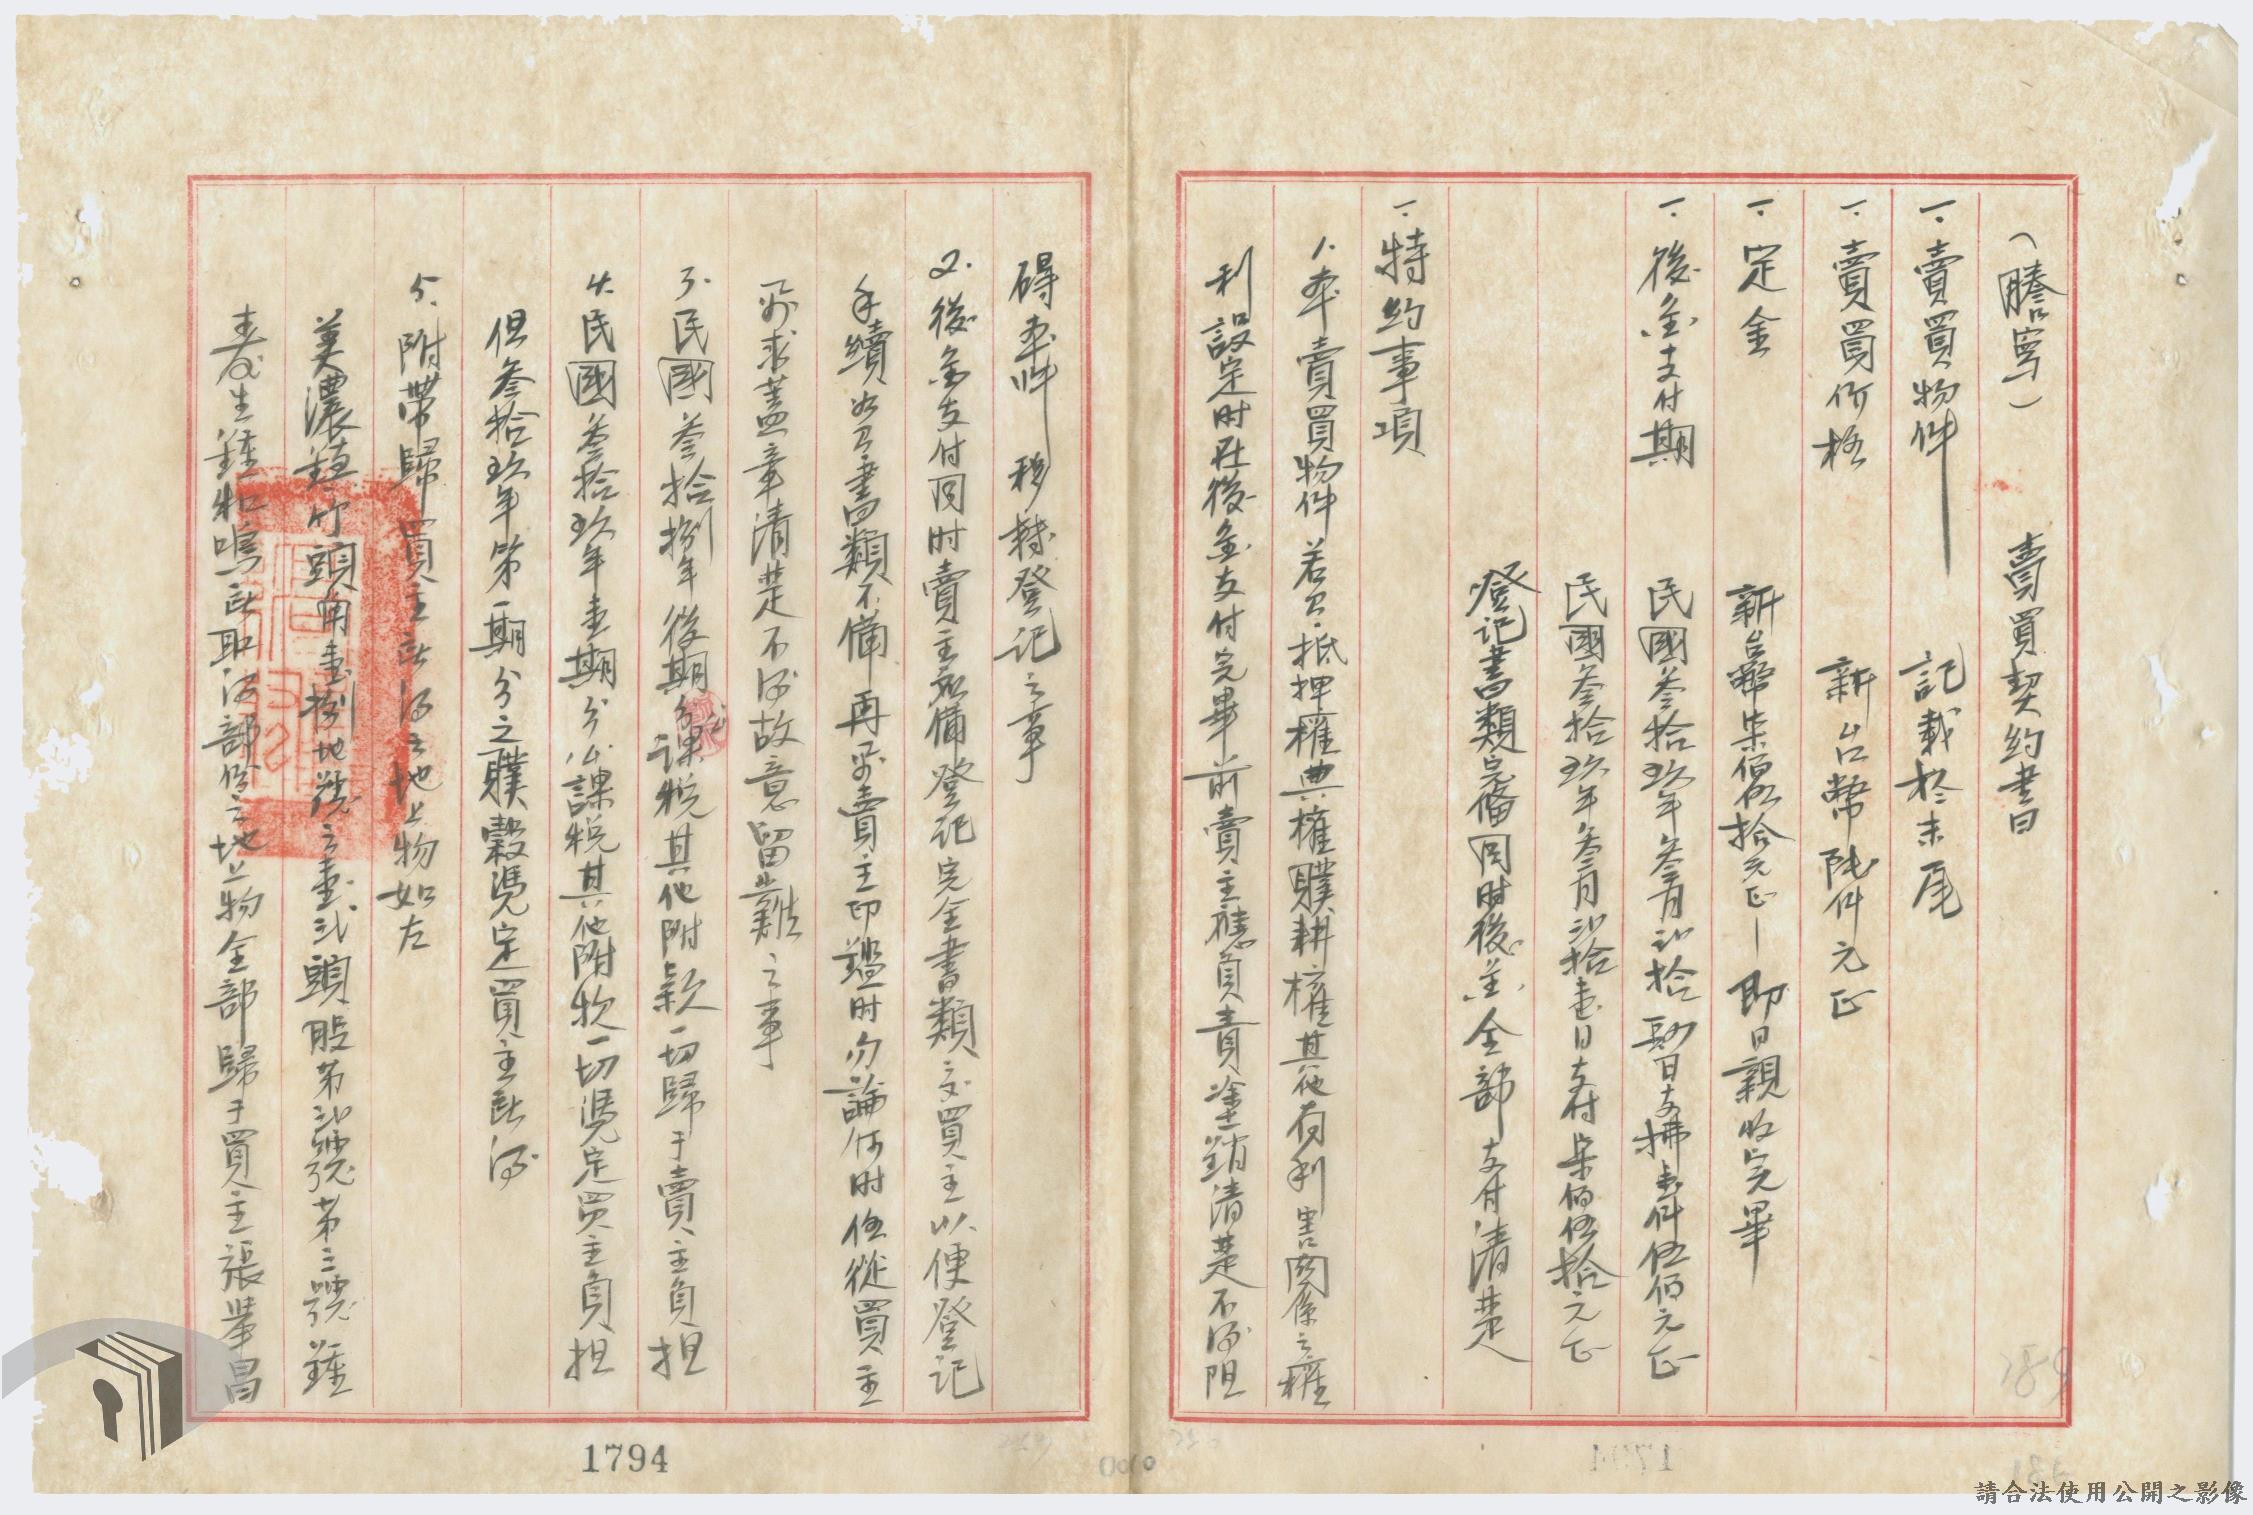 (謄寫) 賣買契約書
一. 賣買物件 記載於末尾
一. 賣買價格 新台幣陸仟元正
一. 定金 新台幣柒佰伍拾元正 即日親收完畢
一. 後金支付期 民國叁拾玖年叁月弍拾 日支拂壹仟伍佰元正
民國叁拾玖年叁月弍拾壹日支付柒佰伍拾元正
登記書類完備同時後金全部支付清楚
一. 特約事項
1. 本賣買物件若有抵押權典權贌耕權其他有利害關係之權
利設定時在後金支付完畢前賣主應負責塗銷清楚不得阻
碍本件移轉登記之事
2. 後金支付同時賣主須備登記完全書類交買主以便登記
手續如有書類不備再要賣主印鑑時勿論何時任從買主
要求蓋章清楚不得故意留難之事
3. 民國叁拾捌年後期分課稅其他附款一切歸于賣主負担
4. 民國叁拾玖年壹期分公課稅其他附物一切憑定買主負担
但叁拾玖年第一期分之贌穀憑定買主取得
5. 附帶歸買主取得之地上物如左
美濃鎮竹頭角壹捌地號之壹弍頭股第弍號第三號鍾
春生鍾和鳴取得部份之地上物全部歸于買主張舉昌
1794
請合法使用公開之影像